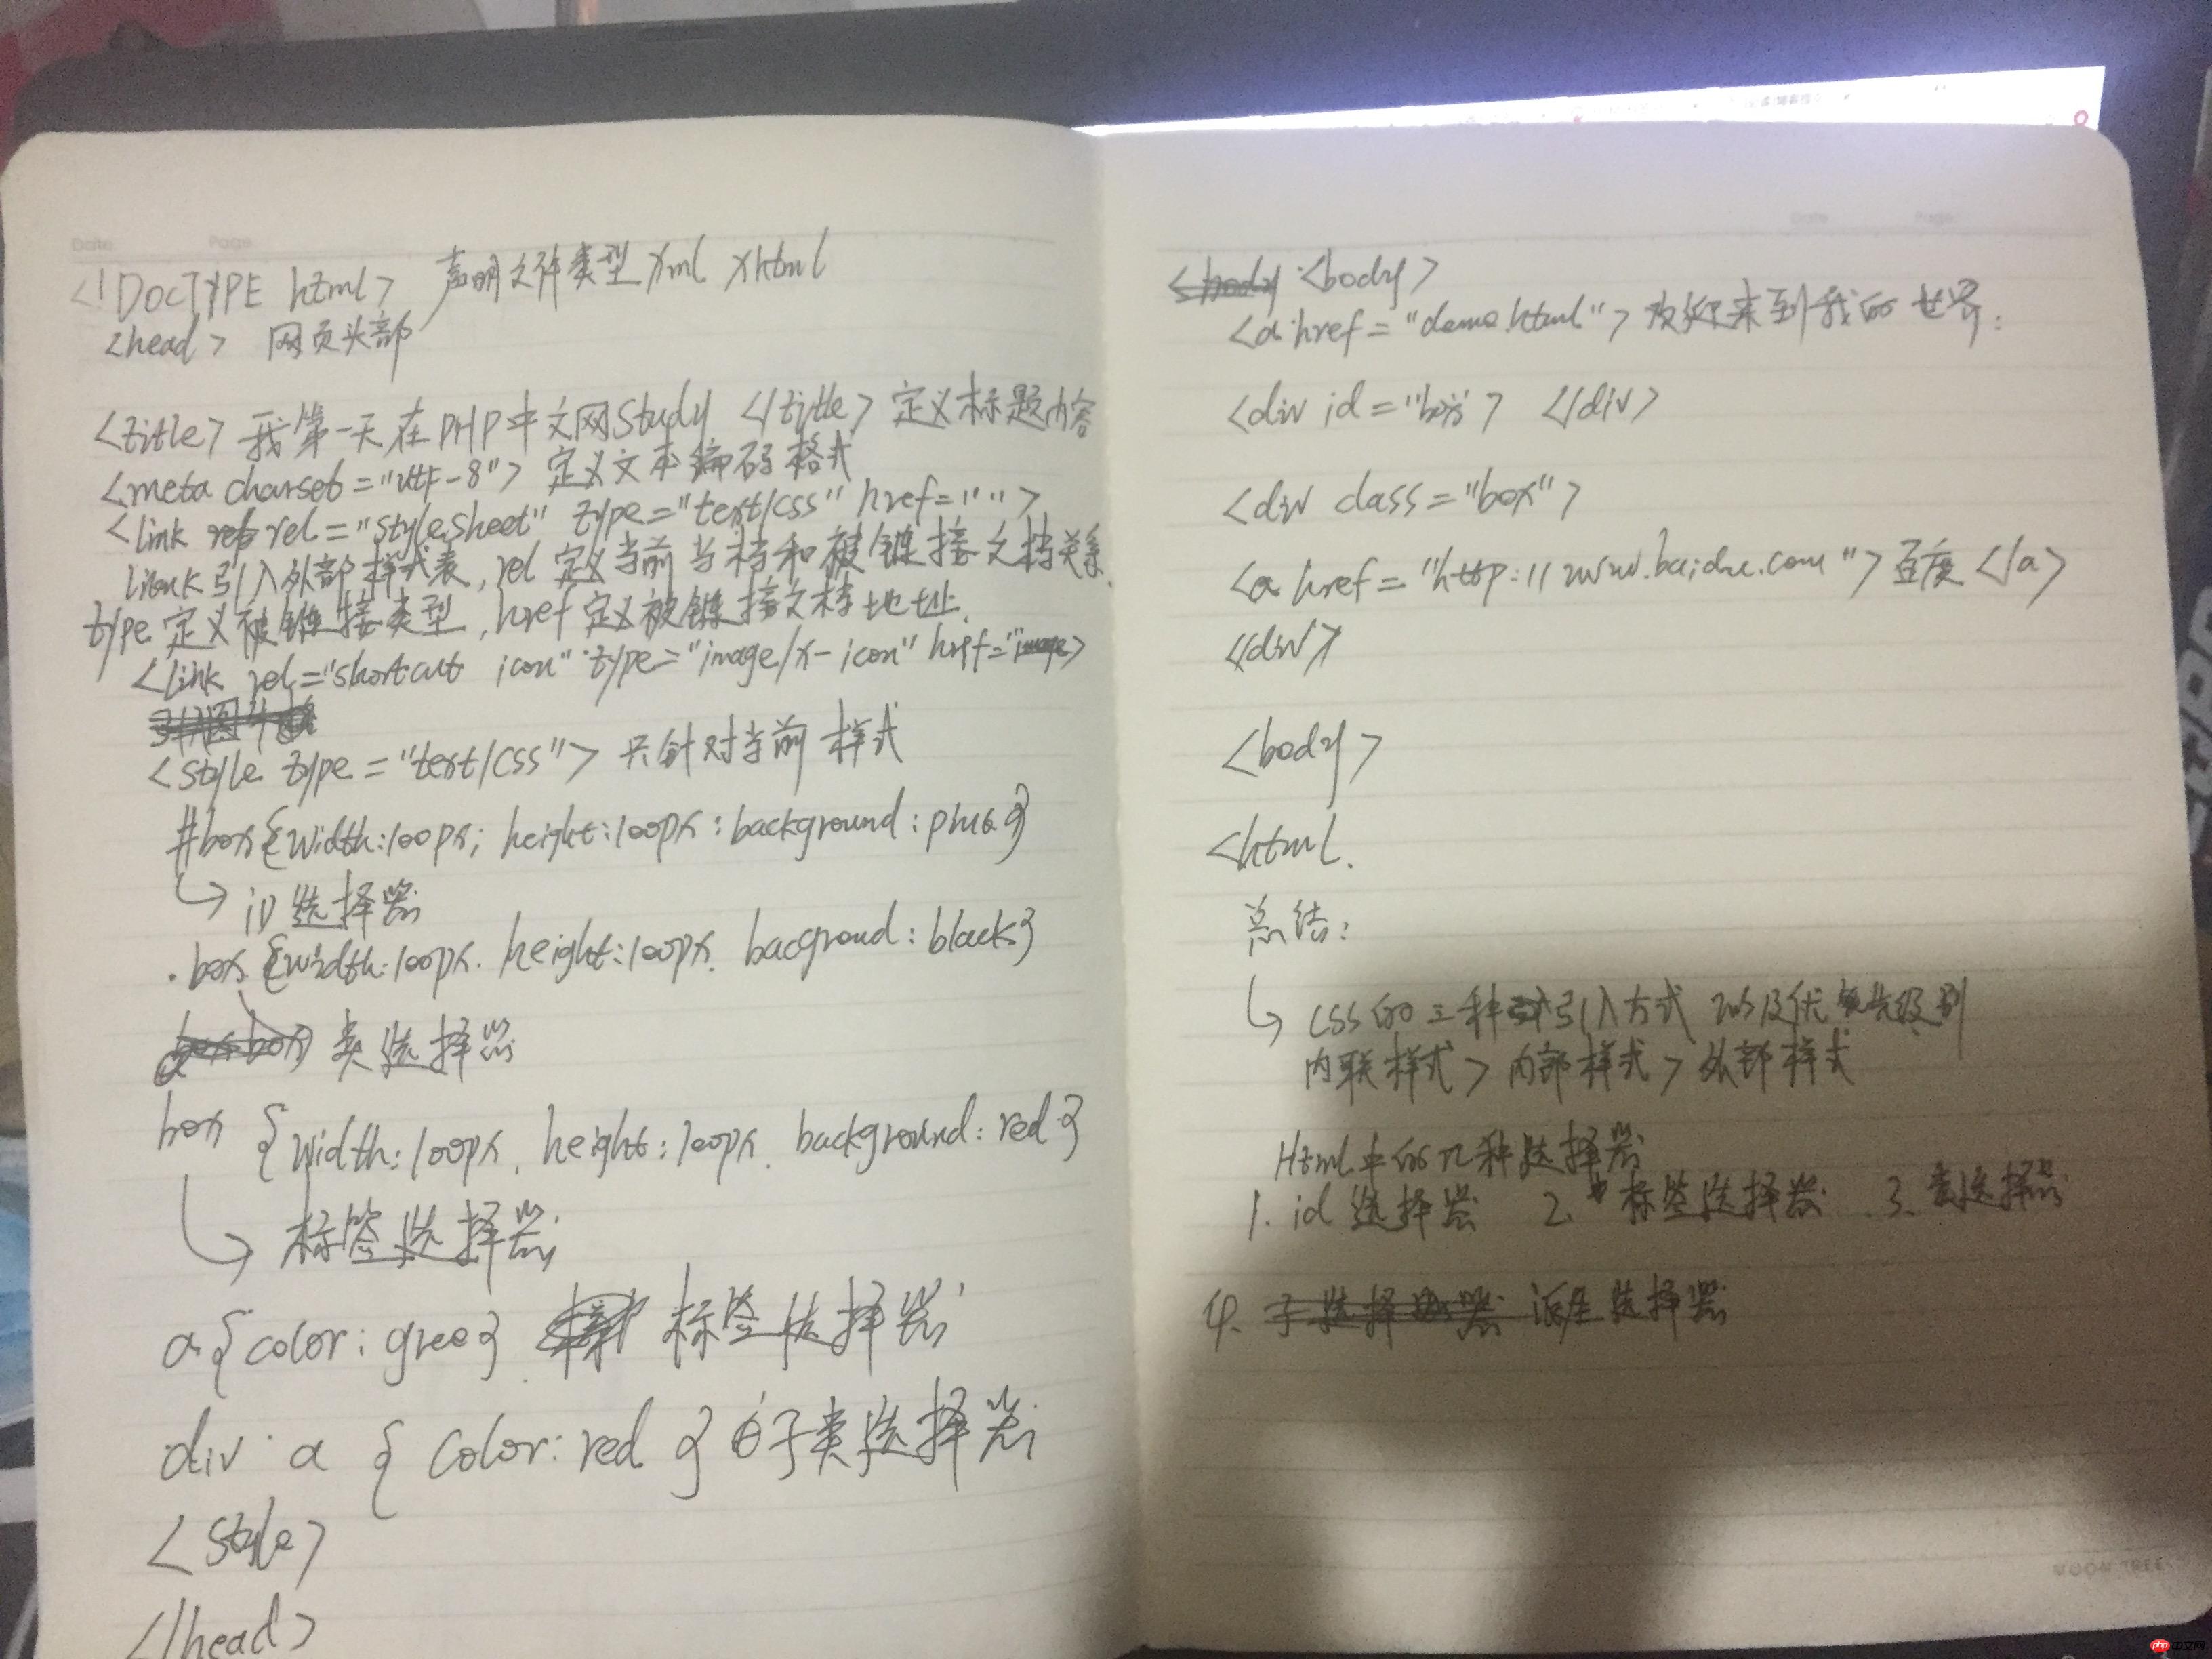 Date Page
<!DOCTYPE html> 声明文件类型 xml xhtml
<head> 网页头部
<title> 我第一天在PHP中文网Study </title> 定义标题内容
<meta charset="utf-8"> 定义文本编码格式
<link rel="stylesheet" type="text/css" href="">
lienk引入外部样式表, rel 定义当前当档和被链接文档关系.
type 定义被链接类型, href定义被链接文档地址.
<link rel="shortcut icon" type="image/x-icon" href="image>
<style type="text/css"> 只针对当前样式
#box{width:100px; height:100px : background: }
iD 选择器
.box {width:100px. height:100px. bacground: black}
类选择器
box {width:100px. height:100px. background: red}
标签选择器
a{color: gree} 标签选择器
div a { color: red } 子类选择器
<style>
</head>
Date Page
<body <body>
<a href="demo.html"> 欢迎来到我的世界:
<div id="box"> </div>
<div class="box">
<a href="http://www.baidu.com"> 百度 </a>
</div>
<body>
<html.
总结:
CSS的三种引入方式 以及优先级别
内联样式 > 内部样式 > 外部样式
Html中的几种选择器
1. id 选择器 2. 标签选择器 .3. 类选择器
4. 子选择器 派生选择器
MOON TREE
php中文网